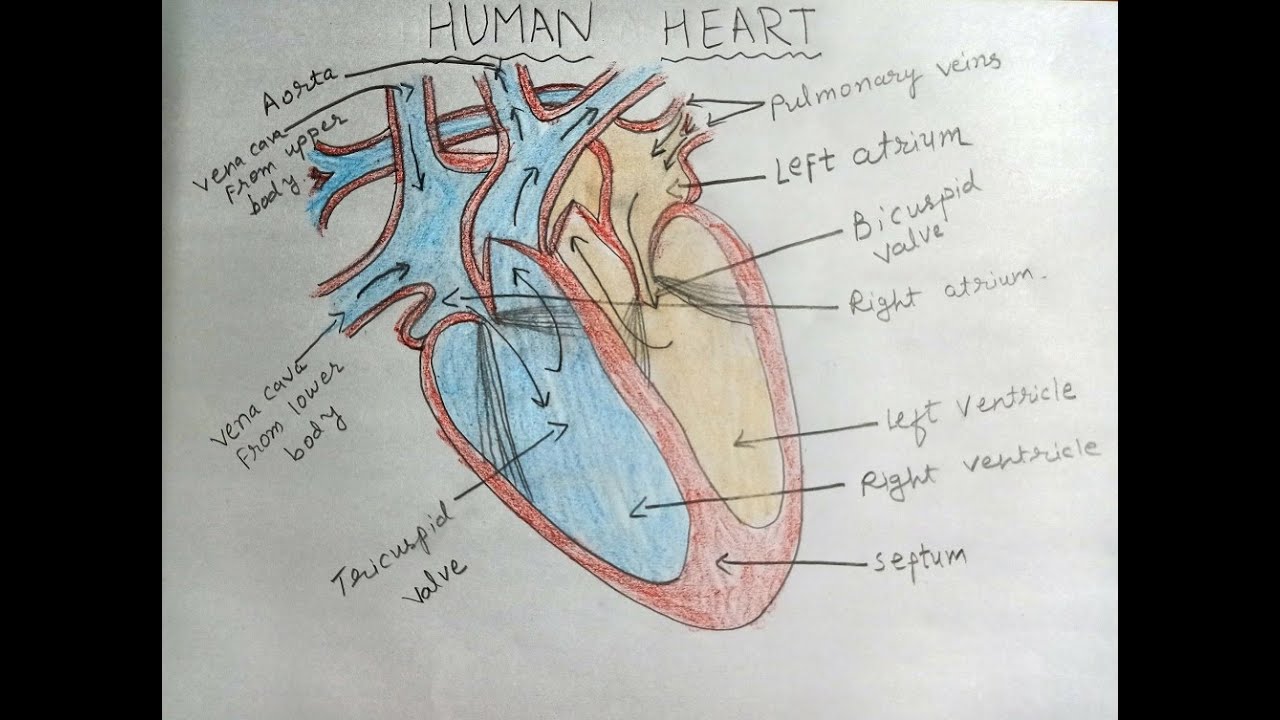 HUMAN HEART
Aorta
vena cava
From upper
body
Pulmonary veins
Left atrium
Bicuspid
valve
Right atrium.
vena cava
From lower
body
Left ventricle
Right ventricle
Tericuspid
valve
Septum